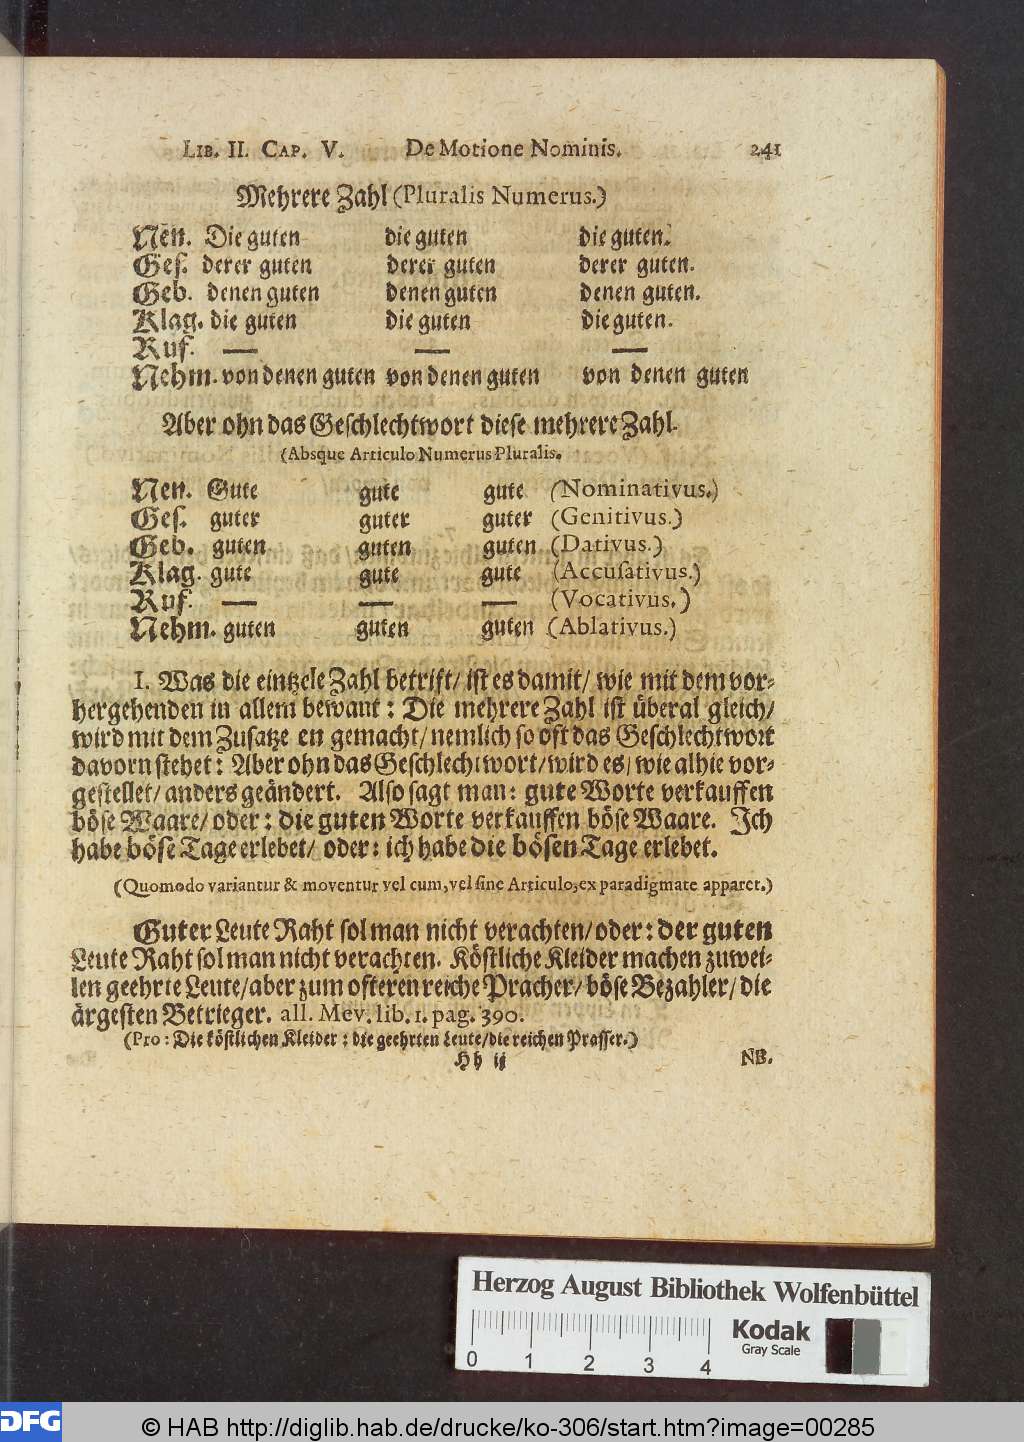 LIB. II. CAP. V. De Motione Nominis. 241
Mehrere Zahl (Pluralis Numerus.)
Nen. Die guten die guten die guten.
Ges. derer guten derer guten derer guten.
Geb. denen guten denen guten denen guten.
Klag. die guten die guten die guten.
Ruf. — — —
Nehm. von denen guten von denen guten von denen guten
Aber ohn das Geschlechtwort diese mehrere Zahl.
(Absque Articulo Numerus Pluralis.
Nen. Gute gute gute (Nominativus.)
Ges. guter guter guter (Genitivus.)
Geb. guten guten guten (Dativus.)
Klag. gute gute gute (Accusativus.)
Ruf. — — — (Vocativus.)
Nehm. guten guten guten (Ablativus.)
I. Was die eintzele Zahl betrift/ ist es damit/ wie mit dem vor-
hergehenden in allem bewant: Die mehrere Zahl ist überal gleich/
wird mit dem Zusatze en gemacht/ nemlich so oft das Geschlechtwort
davorn stehet: Aber ohn das Geschlechtwort/ wird es/ wie alhie vor-
gestellet/ anders geändert. Also sagt man: gute Worte verkauffen
böse Waare/ oder: die guten Worte verkauffen böse Waare. Ich
habe böse Tage erlebet/ oder: ich habe die bösen Tage erlebet.
(Quomodo variantur & moventur vel cum, vel sine Articulo, ex paradigmate apparet.)
Guter Leute Raht sol man nicht verachten/ oder: der guten
Leute Raht sol man nicht verachten. Köstliche Kleider machen zuwei-
len geehrte Leute/ aber zum ofteren reiche Pracher/ böse Bezahler/ die
ärgesten Betrieger. all. Mev. lib. 1. pag. 390.
(Pro: Die köstlichen Kleider: die geehrten Leute/ die reichen Prasser.)
Hh ij NB.
Herzog August Bibliothek Wolfenbüttel
0 1 2 3 4
Kodak
Gray Scale
DFG © HAB http://diglib.hab.de/drucke/ko-306/start.htm?image=00285